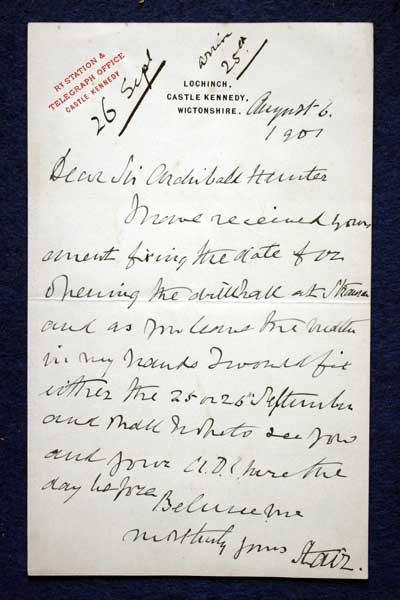 RY STATION &
TELEGRAPH OFFICE
CASTLE KENNEDY
26 Sept
arrive
25th
LOCHINCH,
CASTLE KENNEDY,
WIGTONSHIRE.
August 6.
1901
Dear Sir Archibald Hunter
I have received yours
anent fixing the date for
opening the drillhall at Stranraer
and as you leave the matter
in my hands I would fix
either the 25 or 26 September
and shall hope to see you
and your A.D.C. here the
day before
Believe me
most truly yours Stair.